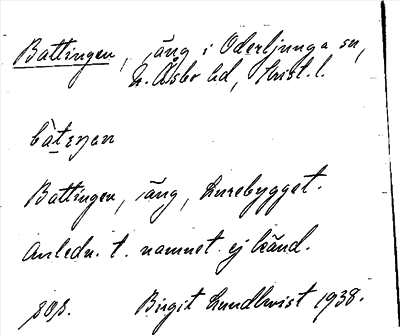 Battingen, äng i Oderljunga sn,
N. Åsbo hd, Krist. l.
bàteŋən
Battingen, äng, Lurebygget.
Anledn. t. namnet ej känd.
Birgit Lundkvist 1938.